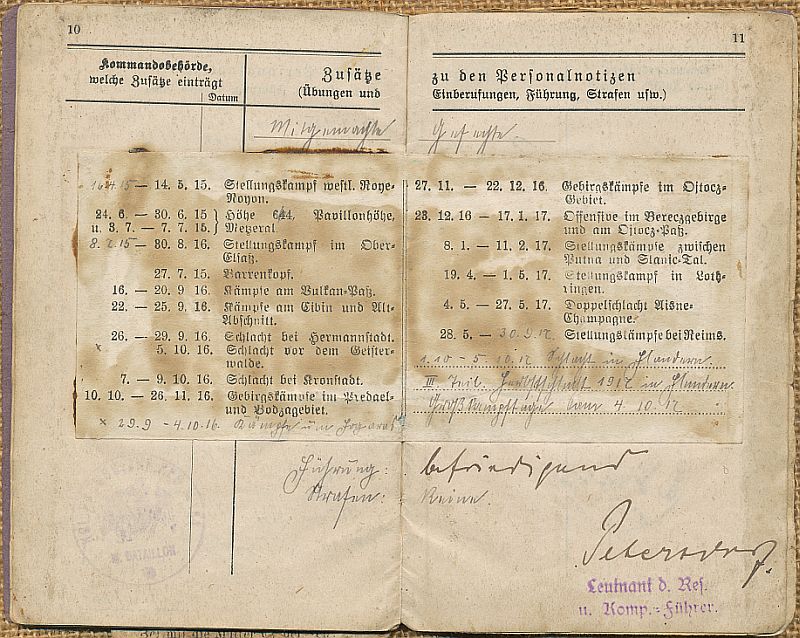 10
Kommandobehörde,
welche Zusätze einträgt
Datum
Zusätze
(Übungen und
Mitgemachte
16.4.15 — 14. 5. 15. Stellungskampf westl. Roye-
Noyon.
24. 6. — 30. 6. 15 } Höhe 644, Pavillonhöhe,
u. 3. 7. — 7. 7. 15. } Metzeral.
8.7.15 — 30. 8. 16. Stellungskampf im Ober-
Elsaß.
27. 7. 15. Barrenkopf.
16. — 20. 9. 16. Kämpfe am Vulkan-Paß.
22. — 25. 9. 16. Kämpfe am Cibin und Alt-
Abschnitt.
26. — 29. 9. 16. Schlacht bei Hermannstadt.
× 5. 10. 16. Schlacht vor dem Geister-
walde.
7. — 9. 10. 16. Schlacht bei Kronstadt.
10. 10. — 26. 11. 16. Gebirgskämpfe im Predael-
und Bodzagebiet.
× 29.9 - 4.10.16. Kämpfe um Fogaras
Führung:
Strafen:
BATAILLON
11
zu den Personalnotizen
Einberufungen, Führung, Strafen usw.)
Gefechte.
27. 11. — 22. 12. 16. Gebirgskämpfe im Ojtocz-
Gebiet.
23. 12. 16 — 17. 1. 17. Offensive im Bereczgebirge
und am Ojtocz-Paß.
8. 1. — 11. 2. 17. Stellungskämpfe zwischen
Putna und Slanic-Tal.
19. 4. — 1. 5. 17. Stellungskampf in Loth-
ringen.
4. 5. — 27. 5. 17. Doppelschlacht Aisne-
Champagne.
28. 5. — 30.9.17. Stellungskämpfe bei Reims.
1.10 - 5.10.17. Schlacht in Flandern.
III. Teil. Herbstschlacht 1917 in Flandern.
Großkampftage vom 4.10.17.
befriedigend
Keine
Petersdorf.
Leutnant d. Res.
u. Komp.-Führer.